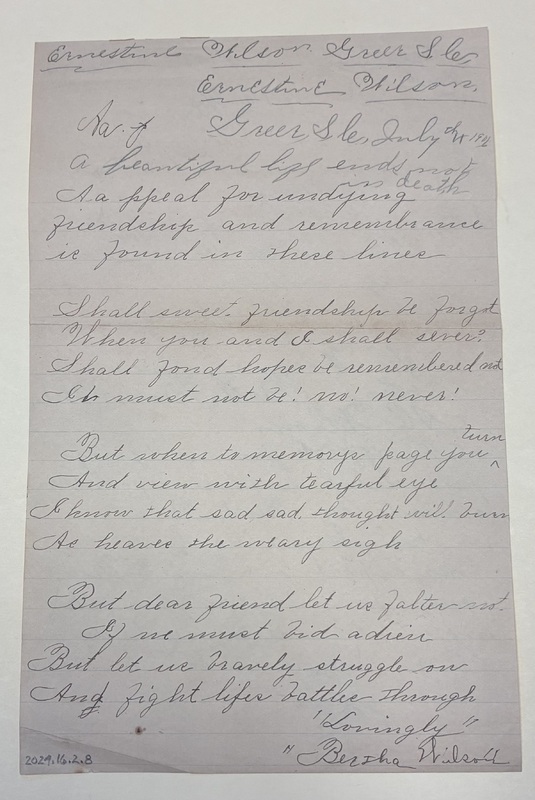 Ernestine Wilson Greer S.C.
Ernestine Wilson.
Greer S.C., July
a beautiful life ends not
in death
Aa ppeal for undying
friendship and remembrance
is found in these lines
Shall sweet friendship be forgot
When you and I shall sever?
Shall fond hopes be remembered not
It must not be! no! never!
But when to memorys page you turn
And view with tearful eye
I know that sad, sad, thought will burn
As heaves the weary sigh
But dear friend let us falter not.
If we must bid adieu
But let us bravely struggle on
And fight lifes battles through
"Lovingly"
" Bertha Wilson
2029.16.2.8